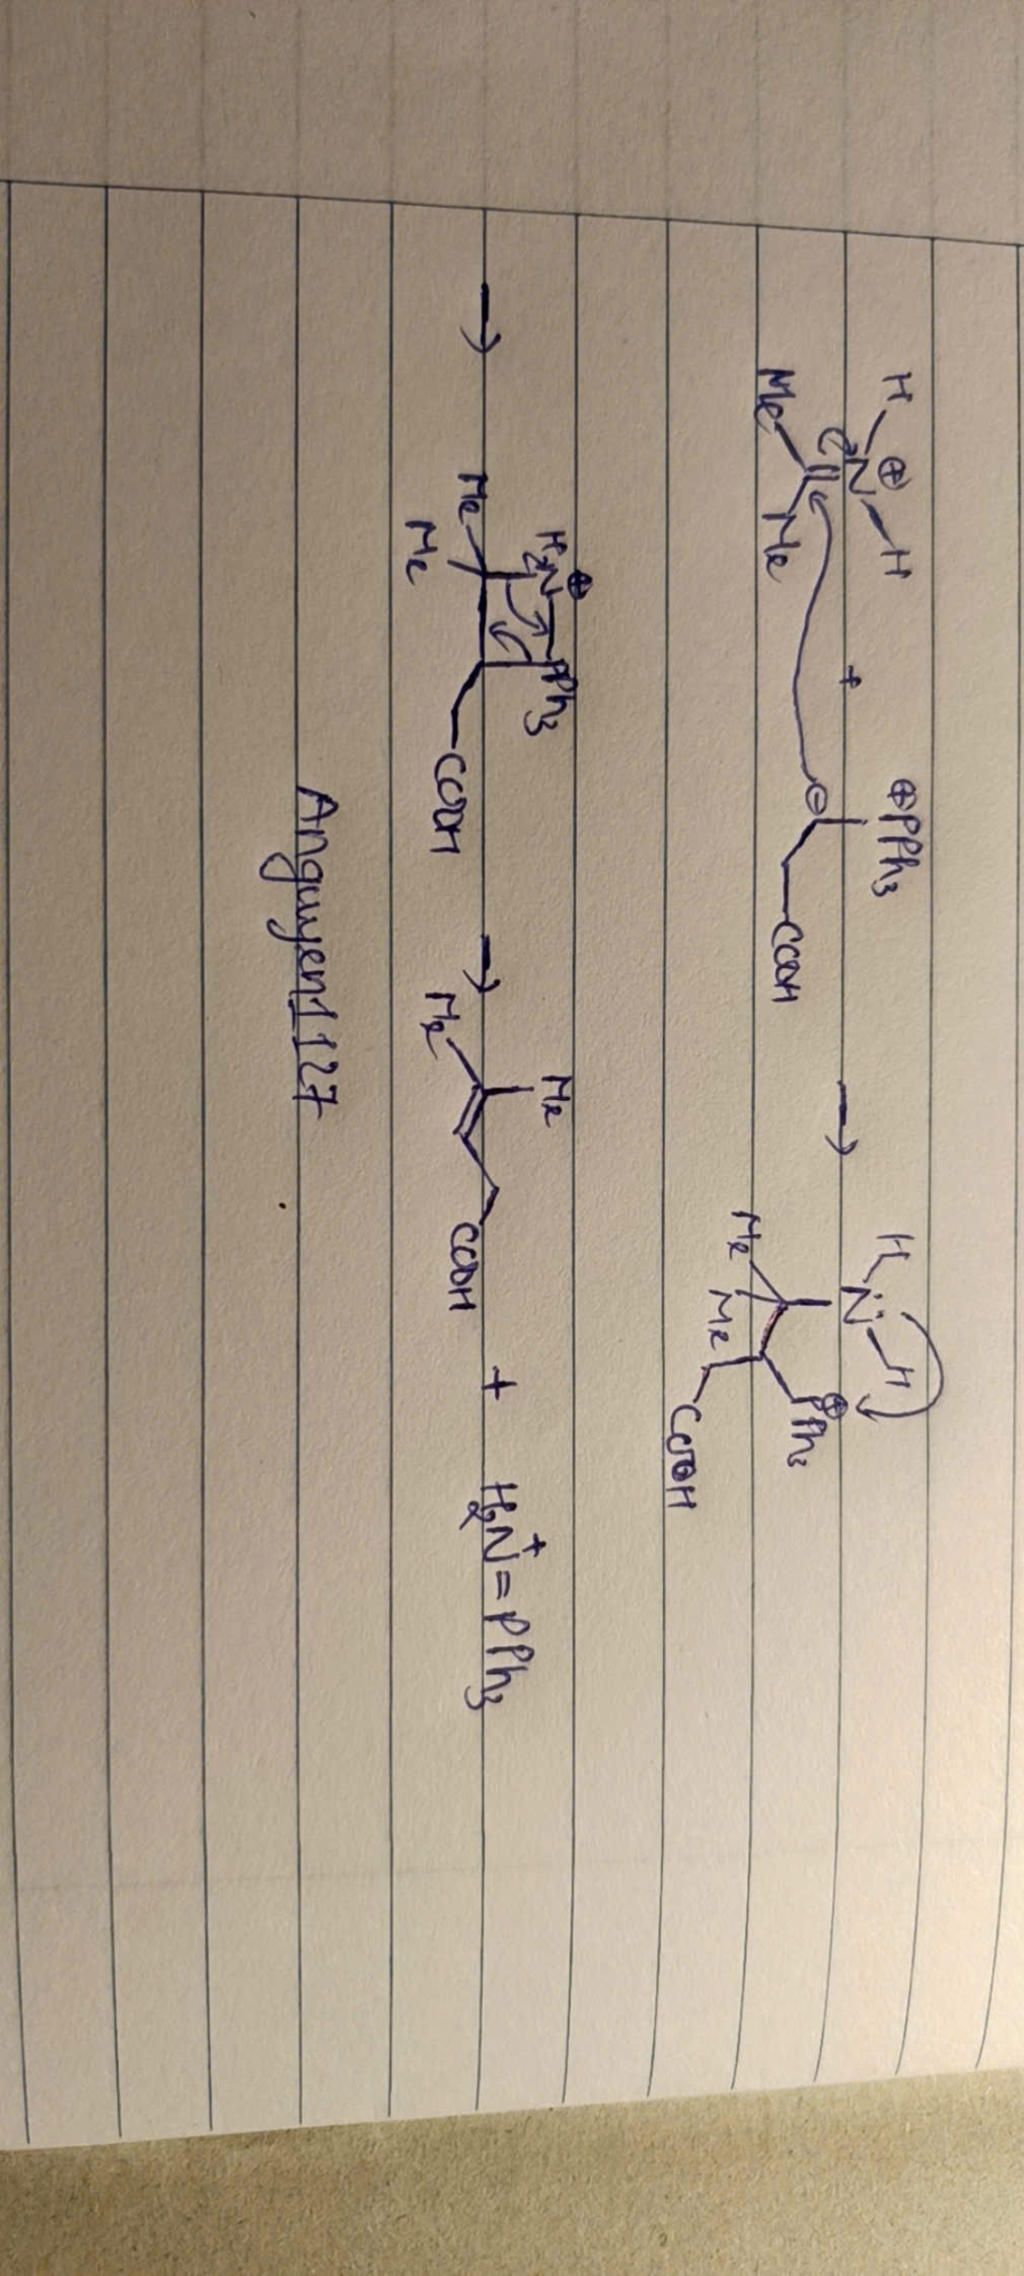 H ⊕N H + ⊕PPh3 → H N̈ H
Me Me ⊖ COOH Me Me ⊕PPh3 COOH
→ H2N⊕ PPh3 Me Me COOH → Me Me COOH + H2N+=PPh3
Anguyen1127